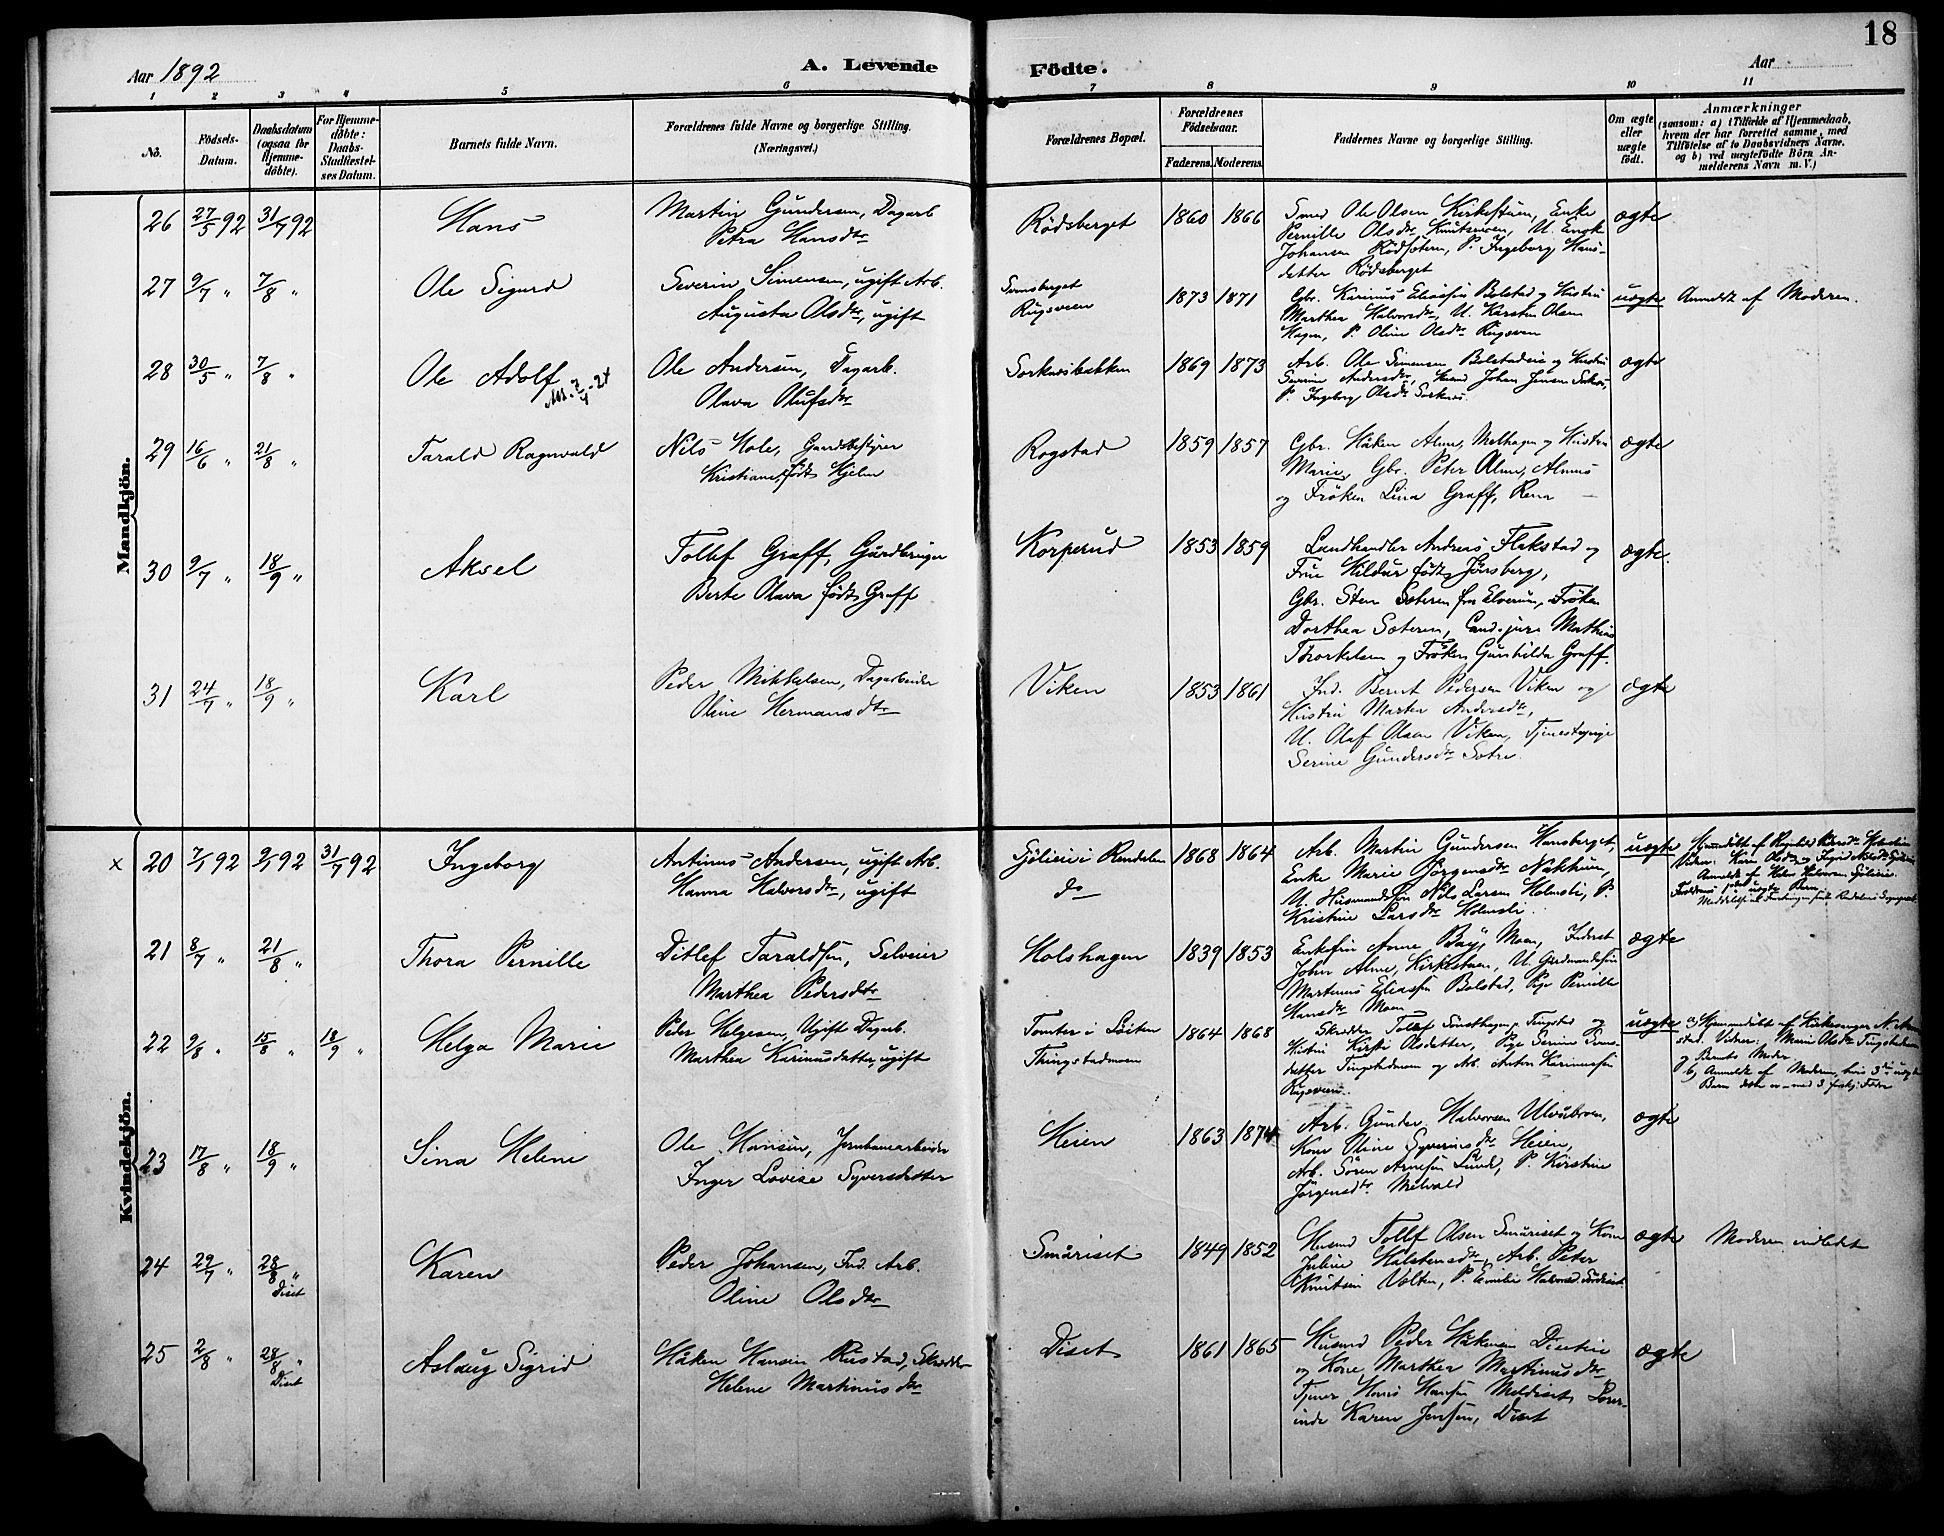 18
Aar 1892
A. Levende
Födte.
Aar
1 2 3 4 5 6 7 8 9 10 11
No.
Födsels-
Datum.
Daabsdatum
(ogsaa for
Hjemme-
döbte).
For Hjemme-
döbte:
Daabs-
Stadfæstel-
ses Datum.
Barnets fulde Navn.
Forældrenes fulde Navne og borgerlige Stilling.
(Næringsvei.)
Forældrenes Bopæl.
Forældrenes
Födselsaar.
Faderens. Moderens.
Faddernes Navne og borgerlige Stilling.
Om ægte
eller
uægte
født.
Anmærkninger
(saasom: a) i Tilfælde af Hjemmedaab,
hvem der har forrettet samme, med
Tilföielse af to Daabsvidners Navne.
og b) ved uægtefödte Börn An-
melderens Navn m. V.)
Mandkjön.
26 27/5 92 31/7 92 Hans
Martin Gundersen, Dagarb
Petra Hansdtr
Rödsberget 1860 1866
Smed Ole Olsen Kirkestuen, Enke
Pernille Olsdtr Knutsveen, U. Engk
Johansen Rödsætern, P. Ingeborg Hans-
datter Rödsberget
ægte
27 9/7 " 7/8 " Ole Sigurd
Severin Simensen, ugift Arb.
Augusta Olsdtr, ugift
Rugsveen
1873 1871
Gbr. Karinus Eliasen Bolstad og Hustru
Marthea Halvorsdtr, U. Karsten Olsen
Hagen, P. Oline Olsdtr Rugsveen
uægte Anmeldt af Moderen.
28 30/5 " 7/8 " Ole Adolf
Ole Andersen, Dagarb.
Olava Olufsdtr
Sorknesbakken 1869 1873
Arb. Ole Simensen Bolstadeie og Hustru
Severine Andersdtr, Husmd Johan Jensen
P. Ingeborg Olsdtr Sorknes.
ægte
29 16/6 " 21/8 " Tarald Ragnvald
Nils Hole, Gaardsbestyrer
Kristiane, født Hjelm
Rogstad 1859 1857
Gbr. Håken Alme, Melhagen og Hustru
Marie, Gbr. Peter Alme, Almus
og Fröken Lina Graff, Rena
ægte
30 9/7 " 18/9 " Aksel
Tollef Graff, Gårdbruger
Berte Olava född Graff
Korperud 1853 1859
Landhandler Andreas Flakstad og
Frue Hildur född Jönsberg,
Gbr. Sten Sæteren fra Elverum, Fröken
Dorthea Sæteren, Cand. jure Mathias
Thorkelsen og Fröken Gunhilda Graff.
ægte.
31 24/7 " 18/9 " Karl
Peder Mikkelsen, Dagarbeider
Oline Hermansdtr
Viken 1853 1861
Ind. Bernt Pedersen Viken og
Hustru Marten Andersdtr,
U. Olaf Olsen Viken, Tjenestepige
Serine Gundersdtr Sætre.
ægte
Kvindekjön.
x 20 7/1 92 9/1 92 31/7 92 Ingeborg
Antinus Andersen, ugift Arb.
Hanna Halvorsdtr, ugift
Sjölieie i Rendalen
do
1868 1864
Arb. Martin Gundersen Hansberget,
Enke Marie Jörgensdtr Nakkum,
U. Husmandssön Nils Larsen Holmsli, P.
Kristine Larsdtr Holmsli.
uægte
Anmeldt af Helen Halvorsen Sjölieie.
21 8/7 " 21/8 " Thora Pernille
Ditlef Taraldsen, Selveier
Marthea Pedersdtr
Holshagen 1839 1853
Enkefru Anne Bay, Moen, Inderst
John Alme, Kirkestuen, U. Gårdmandssön
Martinus Eliassen Bolstad, Pige Pernille
Hansdtr Moen
ægte
22 9/8 " 15/8 " 18/9 " Helga Marie
Peder Helgesen, Ugift Dagarb.
Marthea Karinusdatter, ugift
Tomter i Löiten
Thingstadmoen
1864 1868
Skrædder Tollef Tingstad og
Hustru Kirsti Olsdatter, Pige Serine
datter Tingstadmoen og Arb. Anton Karinussen
Rugsveen.
uægte
a) Hjemmedöbt af Kirkesanger
Vidner: Marie Olsdtr Tingstadmoen
og Barnets Moder.
b) Anmeldt af Moderen, hvis 3die uægte
Barn dette er – med 3 forskj. Fædre
23 17/8 " 18/9 " Sina Helene
Ole Hansen, Jernbanearbeider
Inger Lovise Syversdatter
Heien 1863 1874
Arb. Gunder Halvorsen Ulvåbroen,
Kone Oline Syverinsdtr Heien,
Arb. Sören Arnesen Lund, P. Kirstine
Jörgensdtr. Melvold
ægte
24 29/7 " 28/8 " Karen
Diset
Peder Johansen, Ind. Arb.
Oline Olsdtr
Småriset 1849 1852
Husmd Tollf Olsen Småriset og Kone
Juline Halstensdtr, Arb. Peter
Knutsen Volten, P. Emilie Halvorsd.
ægte Moderen indledet
25 2/8 " 28/8 " Aslaug Sigrid
Diset
Håken Hansen Rustad, Skrædder
Helene Martinusdtr
Diset 1861 1865
Husmd Peder Håkensen Diseteie
og Kone Marthea Martinusdtr
Tjener Hans Hansen Meldiset, Lærer-
inde Karen Jensen, Diset
ægte